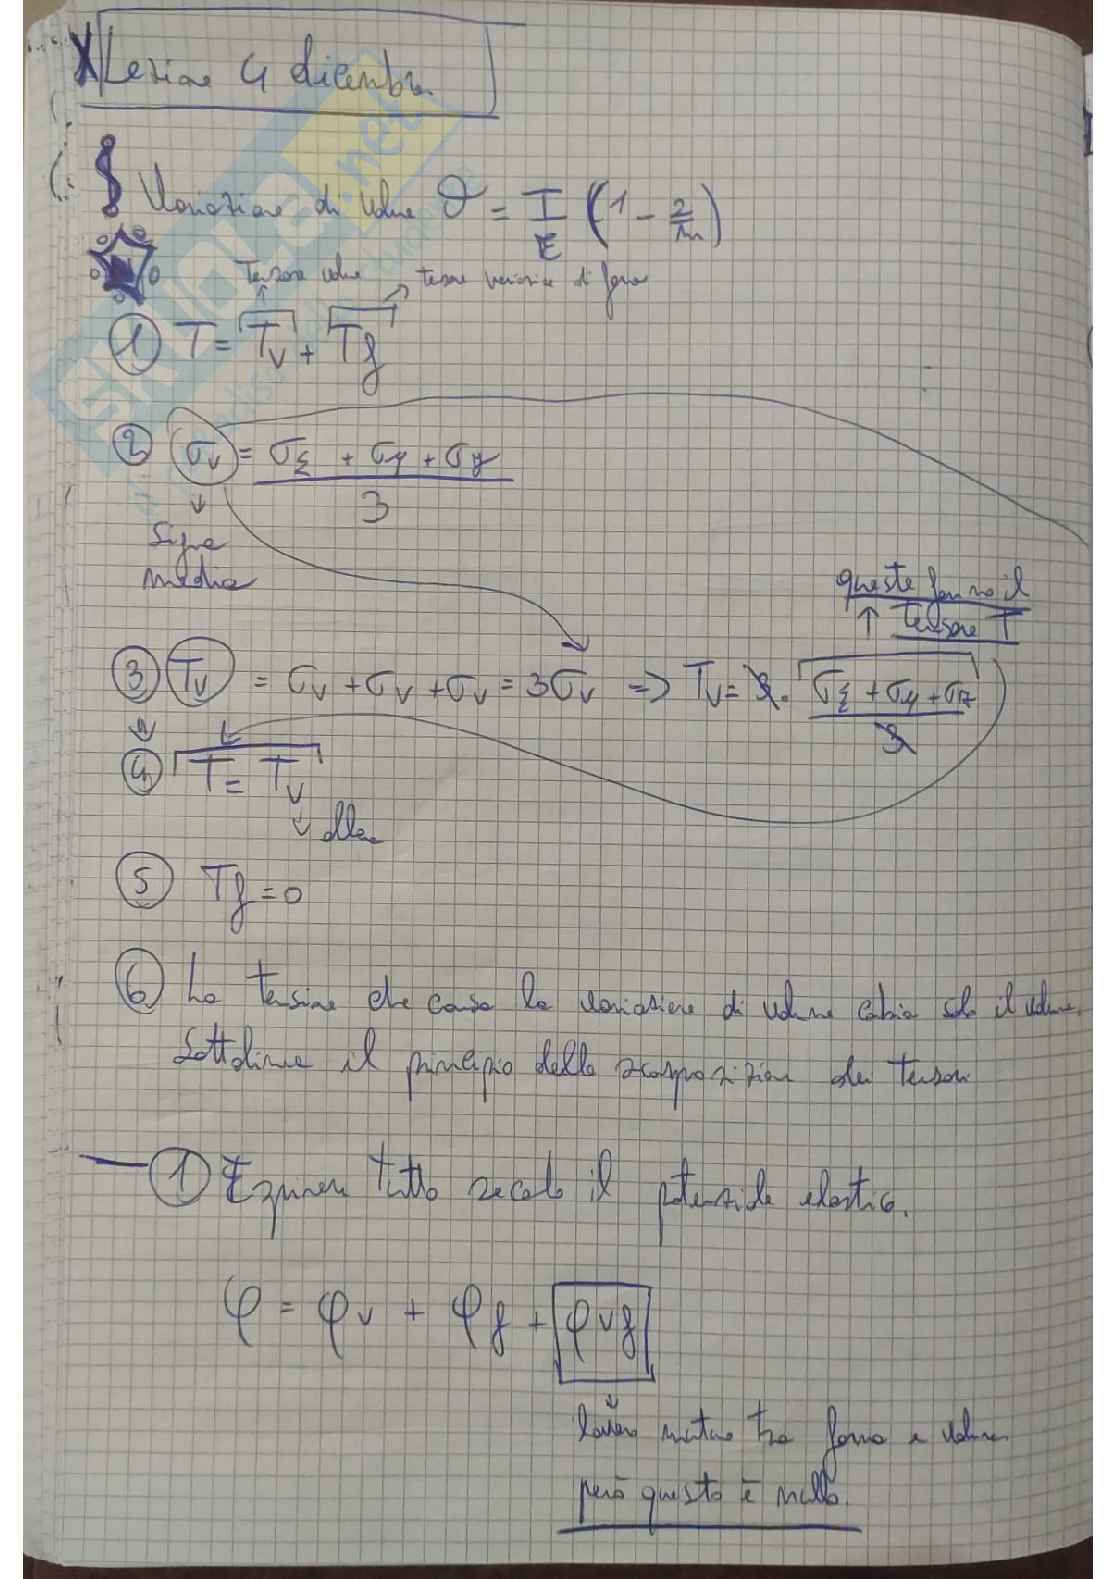 Lezione 4 dicembre
Variazione di volume ϑ = I/E (1 - 2/m)
Tensore volume tensore variazione di forma
① T = Tv + Tf
② σv = (σξ + σy + σz)/3
↓
Sigma
media
queste fanno il
↑ Tensore T
③ Tv = σv + σv + σv = 3σv => Tv = 3 · (σξ + σy + σz)/3
④ T = Tv
↓ allora
⑤ Tf = 0
⑥ La tensione che causa la variazione di volume cambia solo il volume.
Sottolinea il principio della scomposizione dei tensori
— ① Esprimere tutto secondo il potenziale elastico.
φ = φv + φf + φvf
↓
lavoro mutuo tra forma e volume
però questo è nullo.
SKUOLA.net